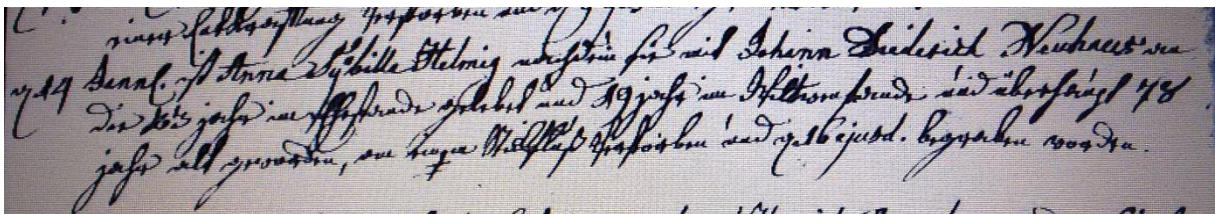 einer Entkräftung verstorben und
d. 14 Janl. ist Anna Sybilla Helmig nachdem sie mit Johann Diederich Neuhaus in
die 33 jahr im Ehestande gelebet und 19 jahr im Wittwenstande und überhaupt 78
jahr alt geworden, an einem Stickfluß verstorben und d. 16 ejusd. begraben worden.